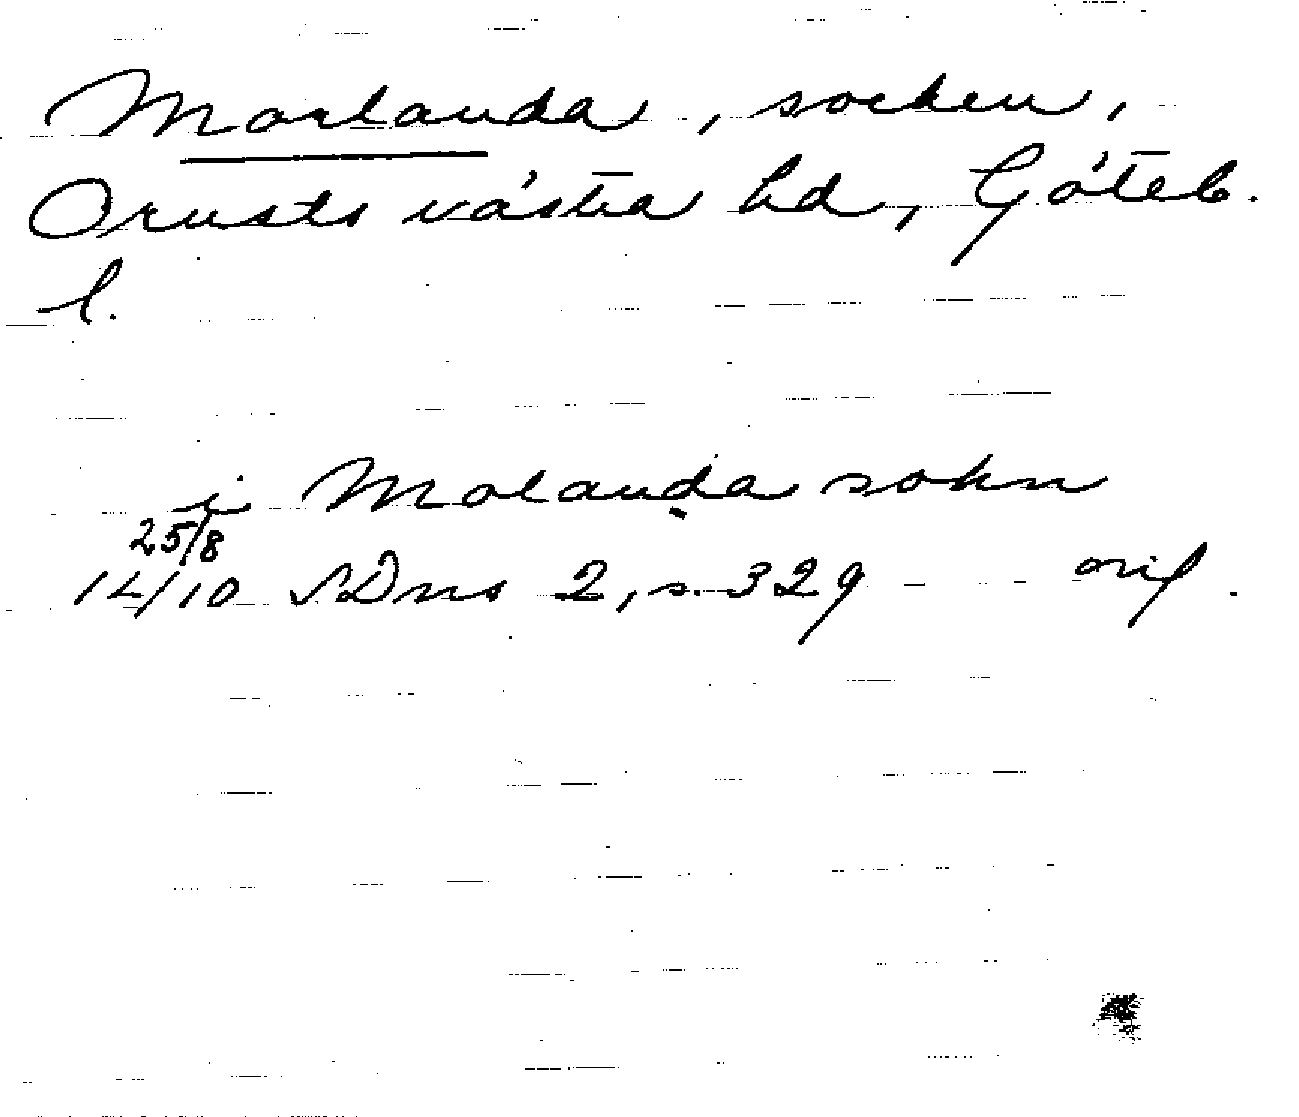 Morlanda, socken,
Orusts västra hd, Göteb.
l.
i Molanda sokn
25/8
14/10 SDns 2, s. 329 - - orig.